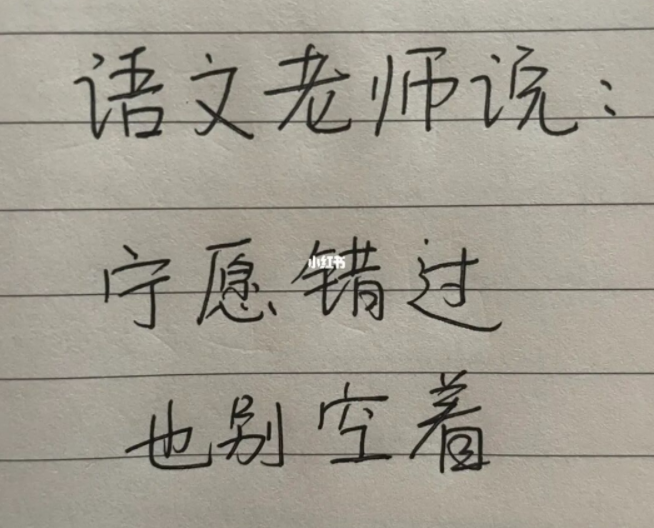 语文老师说：
宁愿错过
小红书
也别空着